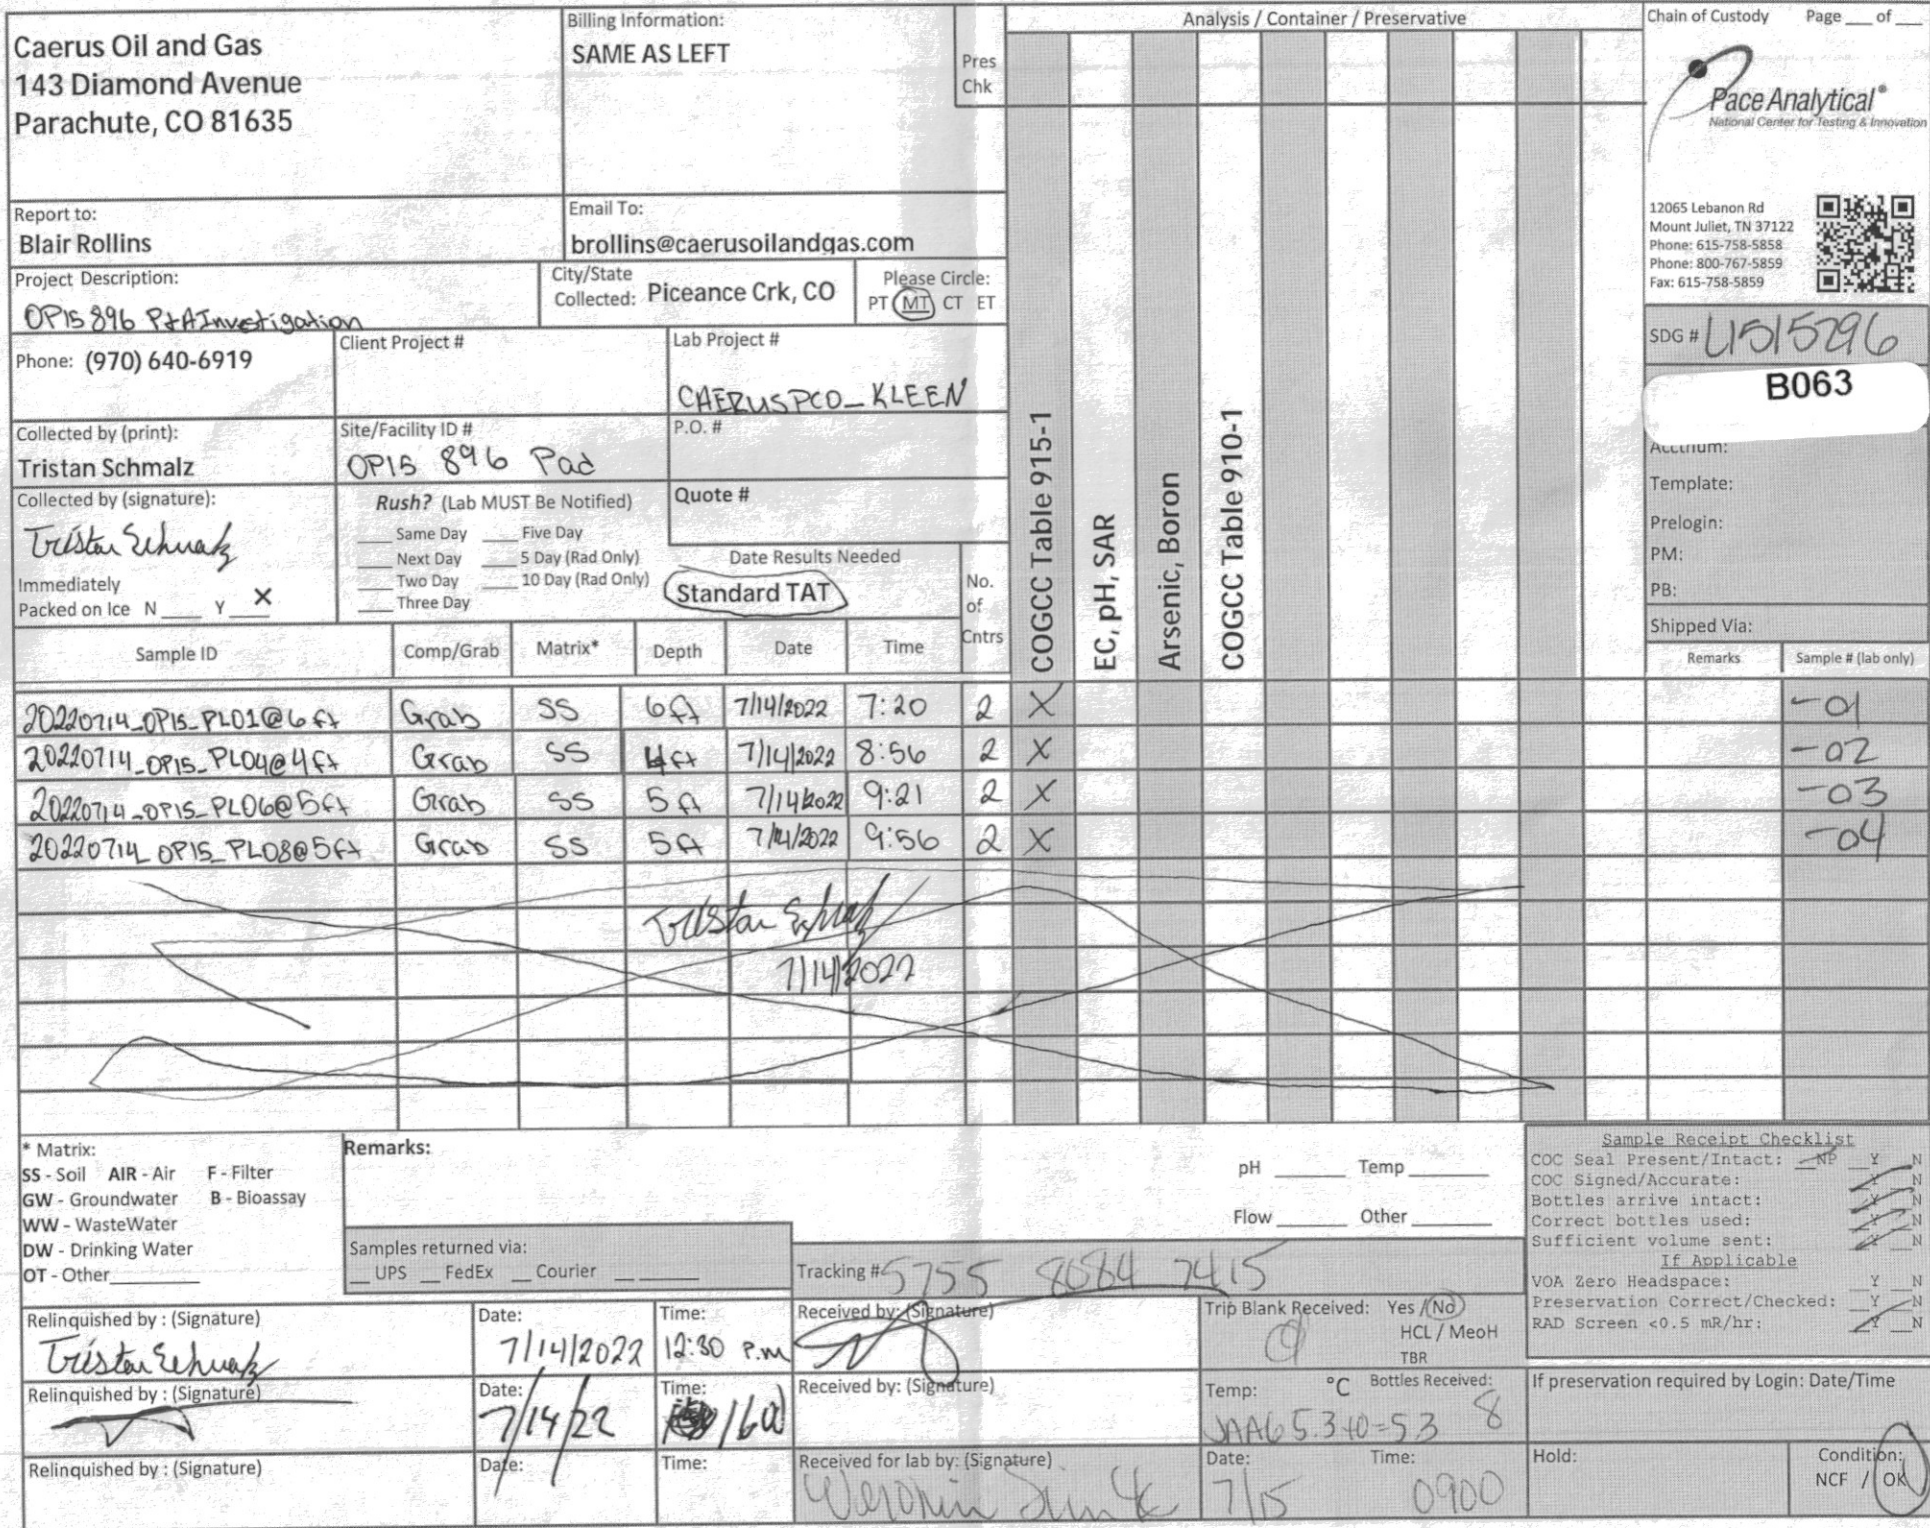 Caerus Oil and Gas
143 Diamond Avenue
Parachute, CO 81635
Billing Information:
SAME AS LEFT
Pres
Chk
Analysis / Container / Preservative
Chain of Custody Page ___ of ___
Pace Analytical®
National Center for Testing & Innovation
12065 Lebanon Rd
Mount Juliet, TN 37122
Phone: 615-758-5858
Phone: 800-767-5859
Fax: 615-758-5859
Report to:
Blair Rollins
Email To:
brollins@caerusoilandgas.com
Project Description:
OP15 896 P&A Investigation
City/State
Collected: Piceance Crk, CO
Please Circle:
PT MT CT ET
Phone: (970) 640-6919
Client Project #
Lab Project #
CAERUSPCO_KLEEN
Collected by (print):
Tristan Schmalz
Site/Facility ID #
OP15 896 Pad
P.O. #
Collected by (signature):
Tristan Schmalz
Immediately
Packed on Ice N ___ Y ___ X
Rush? (Lab MUST Be Notified)
___ Same Day ___ Five Day
___ Next Day ___ 5 Day (Rad Only)
___ Two Day ___ 10 Day (Rad Only)
___ Three Day
Quote #
Date Results Needed
Standard TAT
No.
of
Cntrs
COGCC Table 915-1
EC, pH, SAR
Arsenic, Boron
COGCC Table 910-1
SDG # L1515296
B063
Acctnum:
Template:
Prelogin:
PM:
PB:
Shipped Via:
Sample ID Comp/Grab Matrix* Depth Date Time Remarks Sample # (lab only)
20220714_OP15_PL01@6ft Grab SS 6ft 7/14/2022 7:20 2 X -01
20220714_OP15_PL04@4ft Grab SS 4ft 7/14/2022 8:56 2 X -02
20220714_OP15_PL06@5ft Grab SS 5ft 7/14/2022 9:21 2 X -03
20220714_OP15_PL08@5ft Grab SS 5ft 7/14/2022 9:56 2 X -04
Tristan Schmalz
7/14/2022
* Matrix:
SS - Soil AIR - Air F - Filter
GW - Groundwater B - Bioassay
WW - WasteWater
DW - Drinking Water
OT - Other________
Remarks:
pH ______ Temp ______
Flow ______ Other ______
Samples returned via:
__ UPS __ FedEx __ Courier __ ______
Tracking # 5755 8084 7415
Sample Receipt Checklist
COC Seal Present/Intact: __NP __Y __N
COC Signed/Accurate: __Y __N
Bottles arrive intact: __Y __N
Correct bottles used: __Y __N
Sufficient volume sent: __Y __N
If Applicable
VOA Zero Headspace: __Y __N
Preservation Correct/Checked: __Y __N
RAD Screen <0.5 mR/hr: __Y __N
Relinquished by : (Signature)
Tristan Schmalz
Date:
7/14/2022
Time:
12:30 P.m
Received by: (Signature)
Trip Blank Received: Yes / No
HCL / MeoH
TBR
Relinquished by : (Signature)
Date:
7/14/22
Time:
1600
Received by: (Signature)
Temp: °C Bottles Received:
JAA6 5.3+0=5.3 8
If preservation required by Login: Date/Time
Relinquished by : (Signature)
Date:
Time:
Received for lab by: (Signature)
Date: Time:
7/15 0900
Hold:
Condition:
NCF / OK